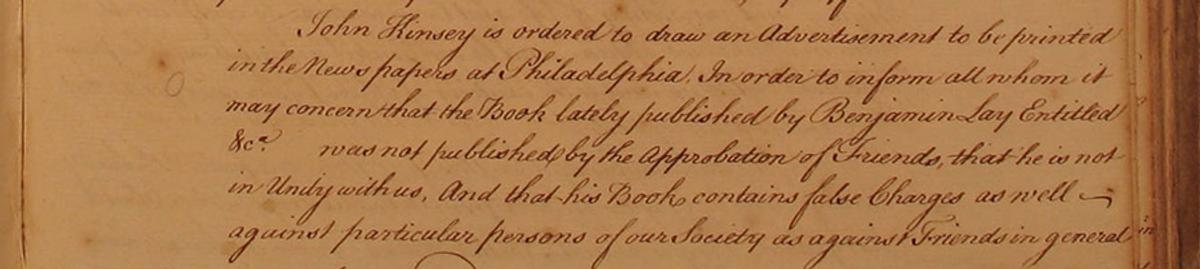 John Kinsey is ordered to draw an Advertisement to be printed
in the News papers at Philadelphia. In order to inform all whom it
may concern that the Book lately published by Benjamin Lay Entitled
&c.a was not published by the Approbation of Friends, that he is not
in Unity with us, And that his Book contains false Charges as well
against particular persons of our Society as against Friends in general